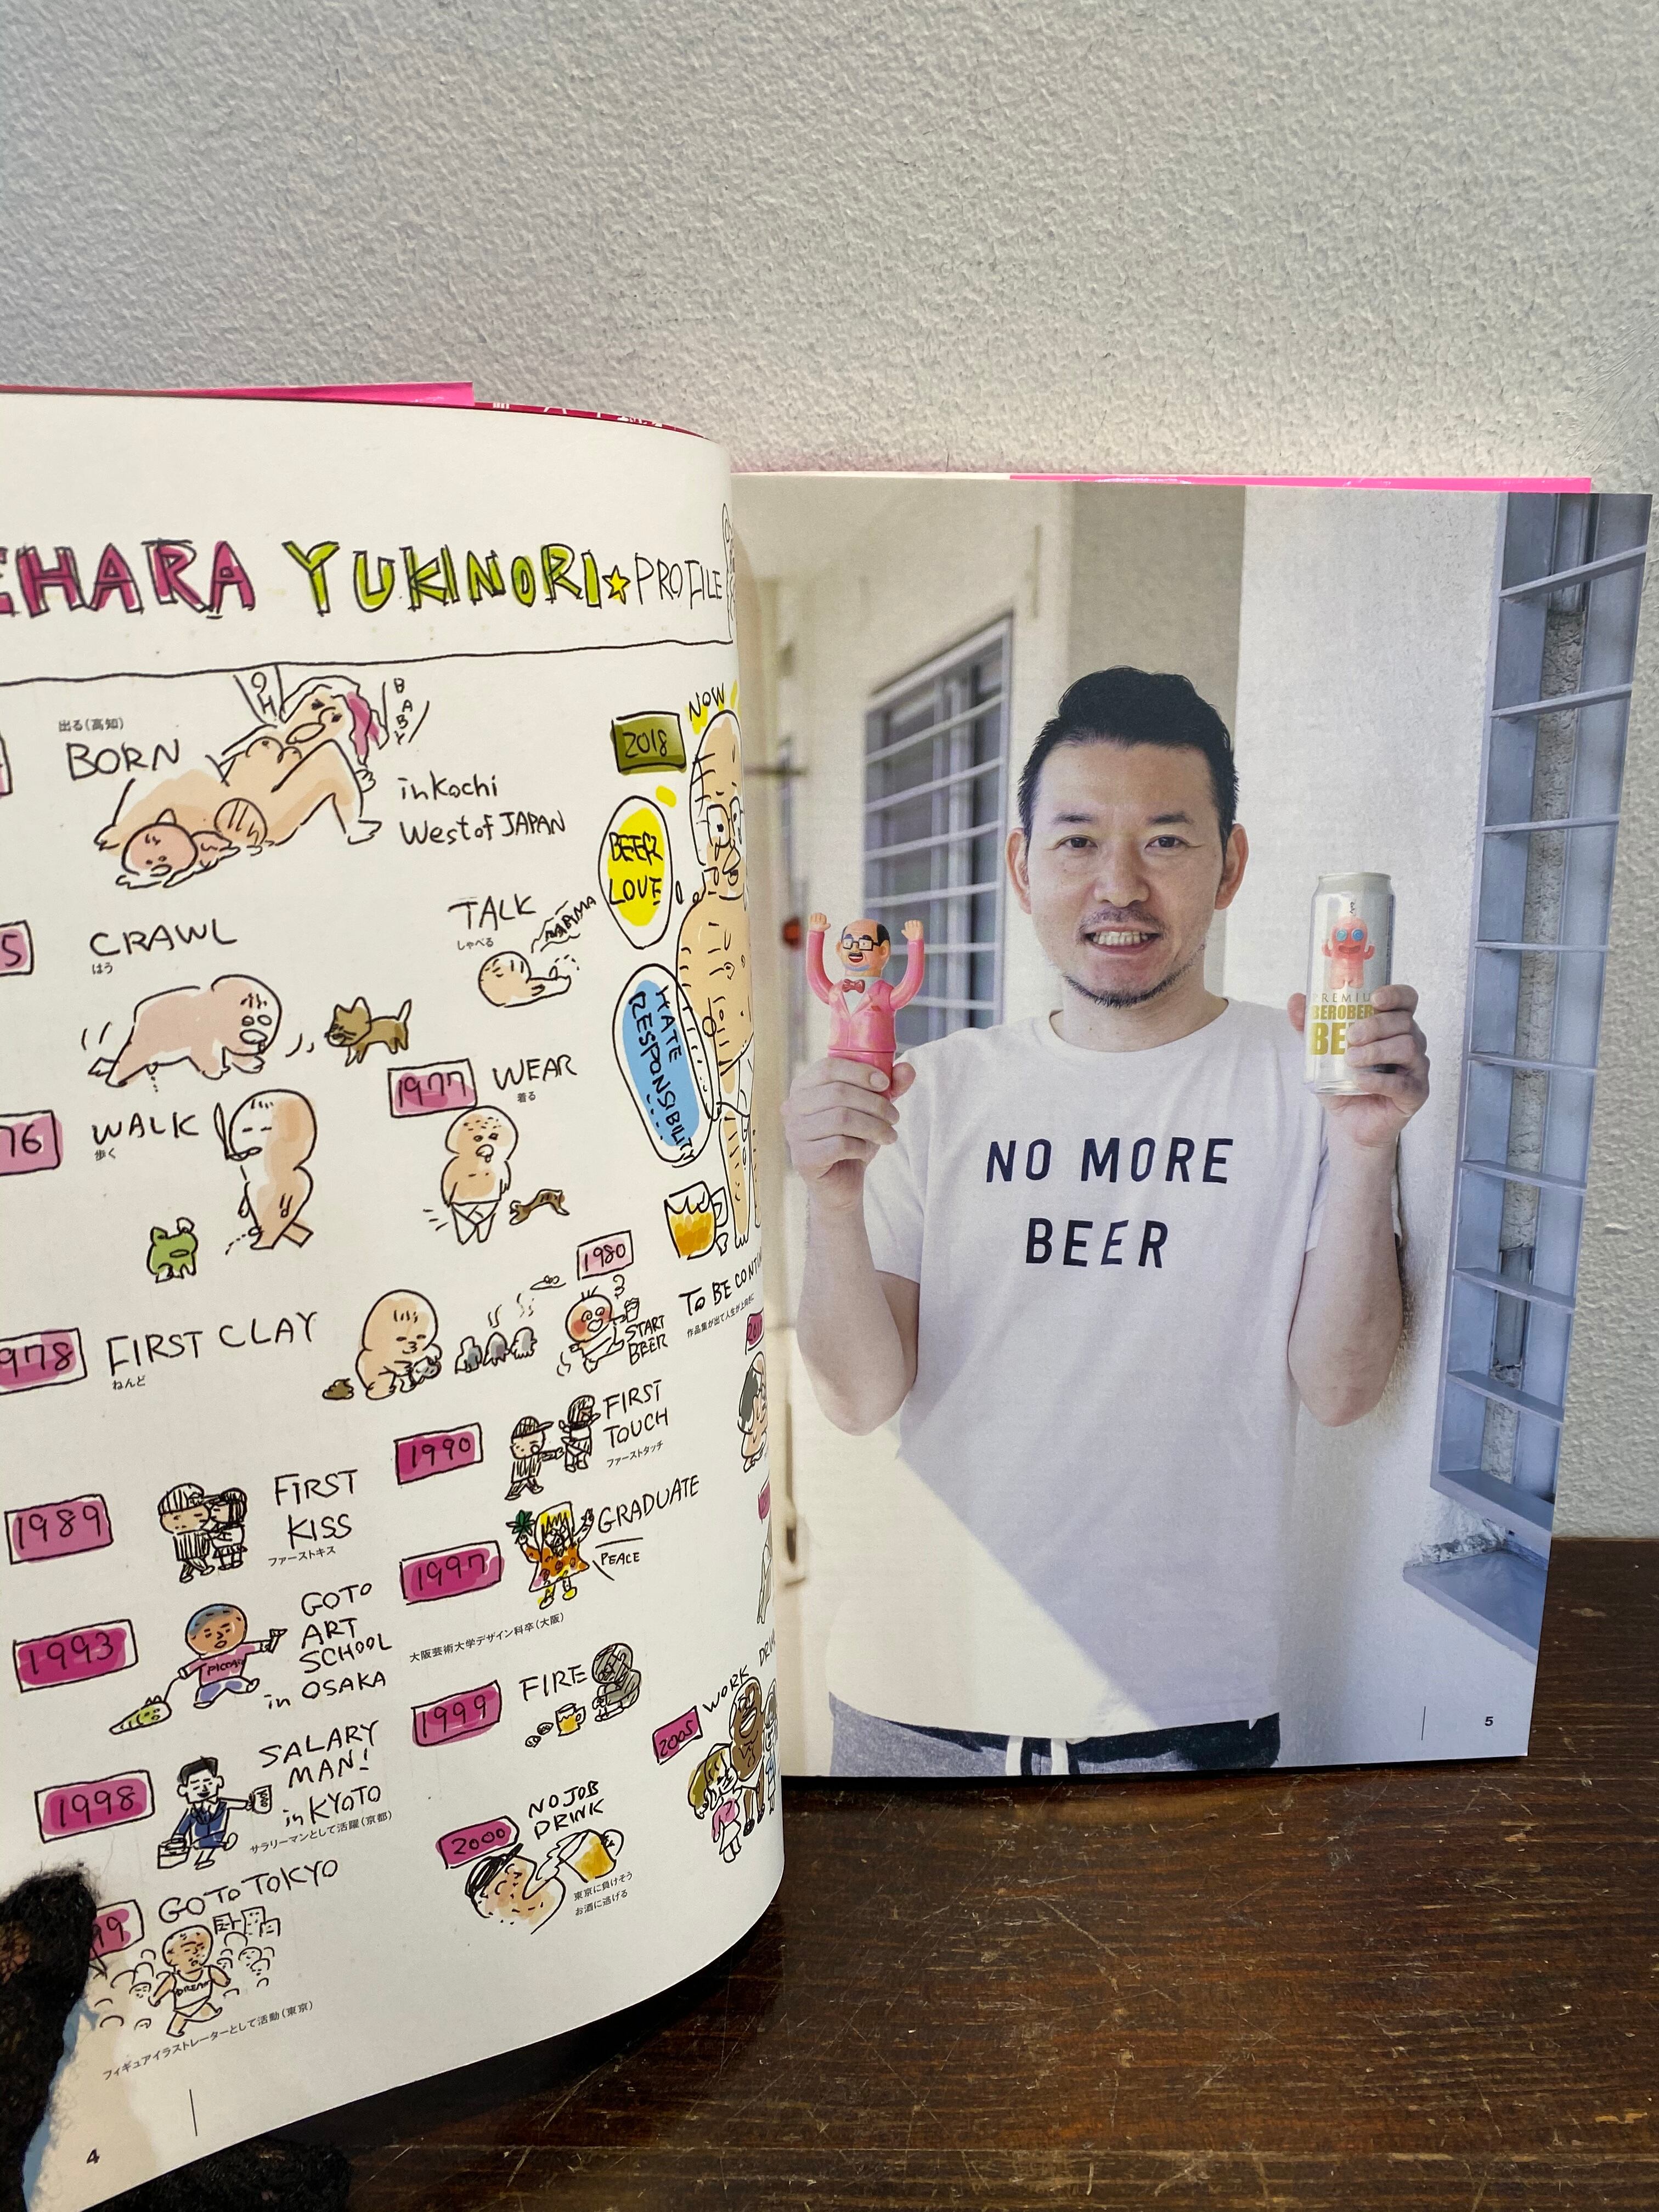 EHARA YUKINORI★PROFILE
出る(高知)
BORN
OH
BABY
in Kochi
West of JAPAN
5
CRAWL
はう
TALK
しゃべる
MAMA
76
WALK
歩く
1977
WEAR
着る
978
FIRST CLAY
ねんど
1980
START
BEER
1989
FIRST
KISS
ファーストキス
1990
FIRST
TOUCH
ファーストタッチ
1993
GOTO
ART
SCHOOL
in OSAKA
PICCASO
1997
GRADUATE
PEACE
大阪芸術大学デザイン科卒(大阪)
1998
SALARY
MAN!
in KYOTO
サラリーマンとして活躍(京都)
1999
FIRE
99
GOTO TOKYO
DREAM
フィギュアイラストレーターとして活動(東京)
2000
NO JOB
DRINK
東京に負けそう
お酒に逃げる
2005
WORK
2018
NOW
BEER
LOVE
HATE
RESPONSIBILITY
TO BE CONTI
作品集が出て人生が上向きに
4
PREMIU
BEROBER
BE
NO MORE
BEER
5